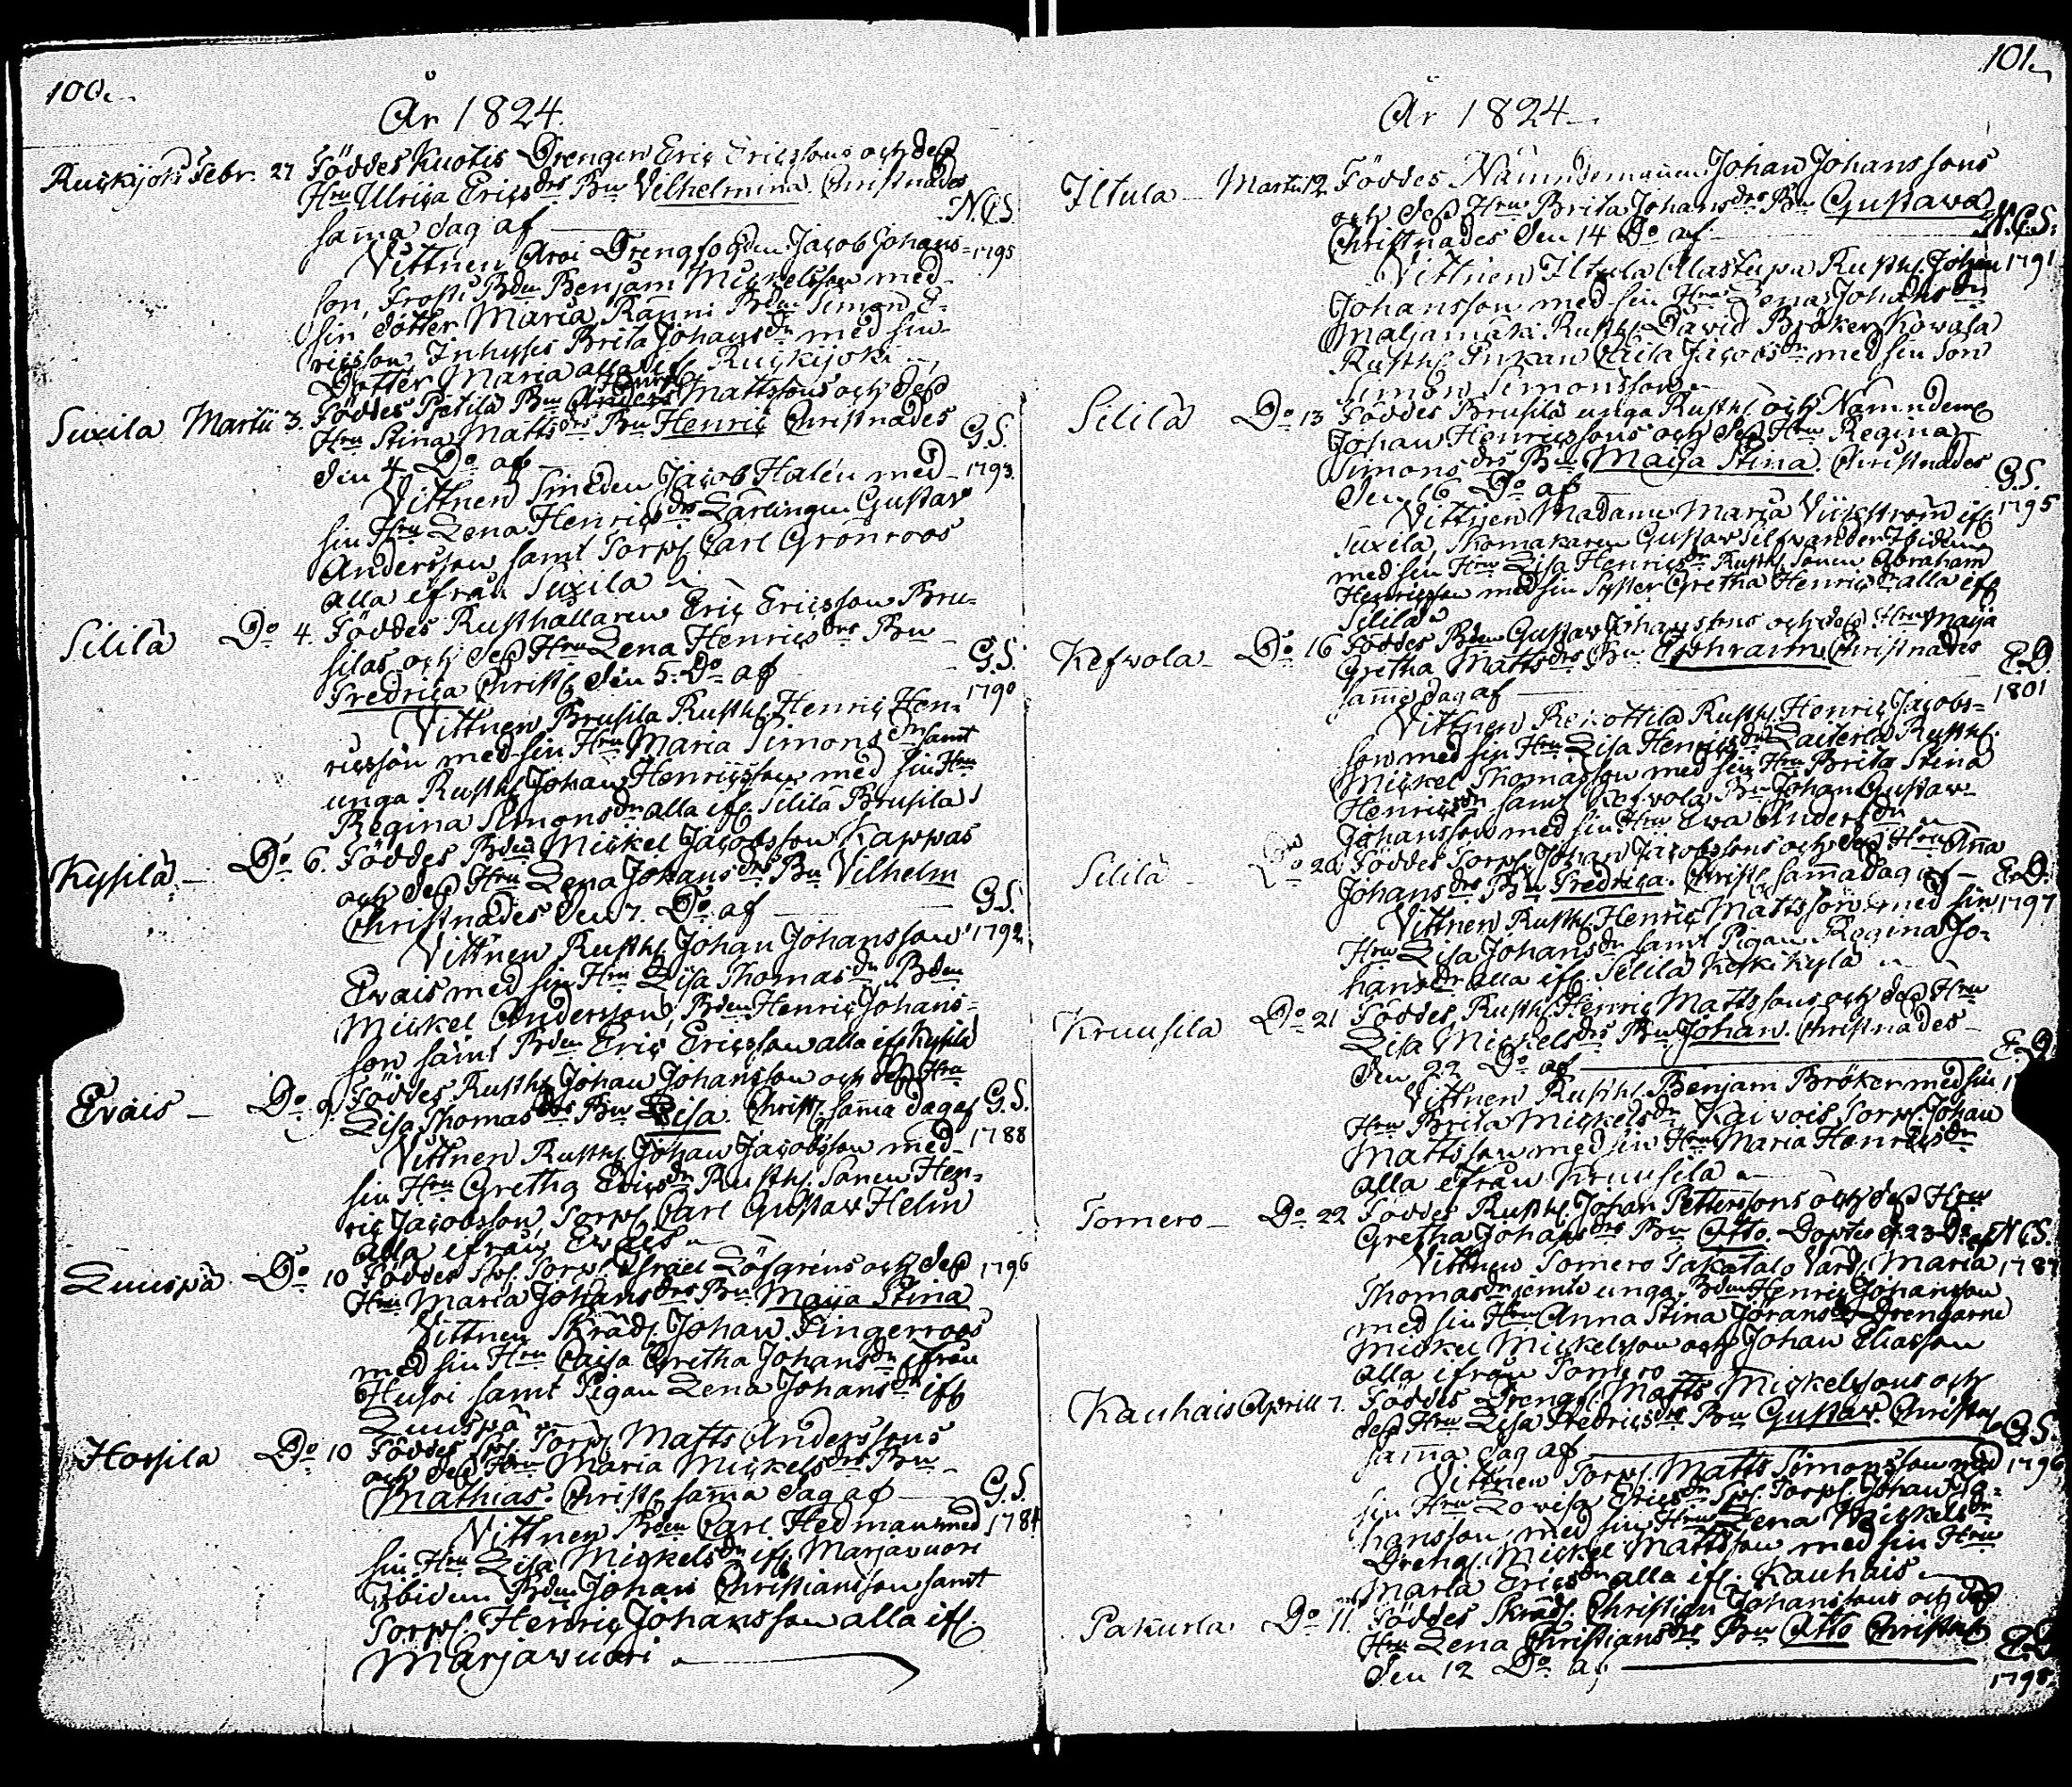 100.
År 1824.
Ruskijoki Febr. 27 Föddes Kuotis Drengen Eric Ericssons och dess
Hru Ulrica Ericsdrs Bn Vilhelmina. Christnades
samma dag af N.C.S.
Vittnen Aroi Drengsochen Jacob Johans- 1795
son, Frosti Bden Benjam Mickelsson med
sin dotter Maria, Ranni Bden Simon E-
ricsson, Inhyses Brita Johansdr med sin
Dotter Maria alla ifl. Ruskijoki
Suxila Martii 3. Föddes Pietilä Bn Anders Henric Mattssons och dess
Hru Stina Mattsdrs Bn Henric Christnades
den 4. Do af G.S.
Vittnen Smeden Jacob Halén med 1793.
sin Hru Lena Henricsdr Lärlingen Gustav
Andersson samt Torpl Carl Grönroos
alla ifrån Suxila
Sililä Do 4. Föddes Rusthållaren Eric Ericsson Bru-
silas och dess Hru Lena Henricsdrs Bn
Fredrica Christl den 5. Do af G.S.
Vittnen Brusila Rusthl Henric Hen- 1790
ricsson med sin Hru Maria Simonsdr samt
unga Rusthl Johan Henricsson med sin Hru
Regina Simonsdr alla ifl. Sililä Brusila
Kysilä Do 6. Föddes Bden Mickel Jacobsson Kappas
och dess Hru Lena Johansdrs Bn Vilhelm
Christnades den 7. Do af G.S.
Vittnen Rusthl Johan Johansson 1792
Evais med sin Hru Lisa Thomasdr Bden
Mickel Andersson, Bden Henric Johans-
son samt Bden Eric Ericsson alla ifl Kysilä
Evais Do 9. Föddes Rusthl Johan Johansson och dess Hru
Lisa Thomasdrs Bn Lisa. Christl. samma dag af G.S.
Vittnen Rusthl Johan Jacobsson med 1788
sin Hru Gretha Ericsdr Rusthl. Sonen Hen-
ric Jacobsson, Torpl Carl Gustav Helin
alla ifrån Evais
Luuspä Do 10 Föddes Spl. Torpl Israel Löfgrens och dess 1796
Hru Maria Johansdrs Bn Maija Stina
Vittnen Skrädl. Johan Fingerroos
med sin Hru Caisa Gretha Johansdr ifrån
Husoi samt Pigan Lena Johansdr ifl
Luuspä
Horsila Do 10 Föddes Spl. Torpl Matts Anderssons
och dess Hru Maria Mickelsdrs Bn
Mathias. Christl samma dag af G.S.
Vittnen Bden Carl Hedman med 1784
sin Hru Lisa Mickelsdr ifl. Marjavuori
Ibidem Bden Johan Christiansson samt
Torpl. Henric Johansson alla ifl.
Marjavuori
101.
År 1824
Iltula Martii 12 Föddes Nämndemannen Johan Johanssons
och dess Hru Brita Johansdrs Bn Gustava
Christnades den 14 Do af N.C.S.
Vittnen Iltula Alastupa Rusthl. Johan 1791
Johansson med sin Hru Lena Johansdr
Maljamäki Rusthl. David Bröker, Kowasa
Rusthl Enkan Caisa Jacobsdr med sin Son
Simon Simonsson
Sililä Do 13 Föddes Brusila unga Rusthl. och Nämndeml
Johan Henricssons och dess Hru Regina
Simonsdrs Bn Maija Stina. Christnades
den 16 Do af G.S.
Vittnen Madamn Maria Vickström ifl 1795
Suxila, Skomakaren Gustav Silfvander Ibidem
med sin Hru Lisa Henricsdr Rusthl. Sonen Abraham
Henricsson med sin Syster Gretha Henricsdr alla ifl
Sililä
Kefvola Do 16 Föddes Bden Gustav Johanssons och dess Hru Maija
Gretha Mattsdrs Bn Ephraim Christnades
samma dag af E.O.
Vittnen Reikottila Rusthl. Henric Jacobs- 1801
son med sin Hru Lisa Henricsdr Laiterla Rusthl.
Mickel Thomasson med sin Hru Brita Stina
Henricsdr samt Kefvola Bn Johan Gustav
Johansson med sin Hru Eva Andersdr
Sililä Do 20 Föddes Torpl. Johan Jacobssons och dess Hru Anna
Johansdrs Bn Fredrica. Christl samma dag af E.O.
Vittnen Rusthl. Henric Mattsson med sin 1797
Hru Lisa Johansdr samt Pigan Regina Jo-
hansdr alla ifl. Sililä Keskikylä
Kruusila Do 21 Föddes Rusthl Henric Mattssons och dess Hru
Lisa Mickelsdrs Bn Johan. Christnades
den 22 Do af E.O.
Vittnen Rusthl. Benjam Bröker med sin 1
Hru Brita Mickelsdr Kaivois Torpl. Johan
Mattsson med sin Hru Maria Henricsdr
alla ifrån Kruusila
Tomero Do 22 Föddes Rusthl. Johan Petterssons och dess Hru
Gretha Johansdrs Bn Otto. Döptes d. 23 Do af N.C.S.
Vittnen Tomero Takatalo Värd. Maria 1787
Thomasdr jemte unga Bden Henric Johansson
med sin Hru Anna Stina Göransdr Drengarne
Mickel Mickelsson och Johan Eliasson
alla ifrån Tomero
Kauhais Aprill 7. Föddes Drengl. Matts Mickelssons och
dess Hru Lisa Fredricsdrs Bn Gustav. Christnl
samma dag af G.S.
Vittnen Torpl. Matts Simonsson med 1796
sin Hru Lovisa Ericsdr Spl. Torpl. Johan Jo-
hansson, med sin Hru Lena Mickelsdr
Drengl. Mickel Mattsson med sin Hru
Maria Ericsdr alla ifl. Kauhais
Pakurla Do 11. Föddes Skrädl. Christian Johanssons och dess
Hru Lena Christiansdrs Bn Otto Christnl
den 12 Do af E.O.
1795.